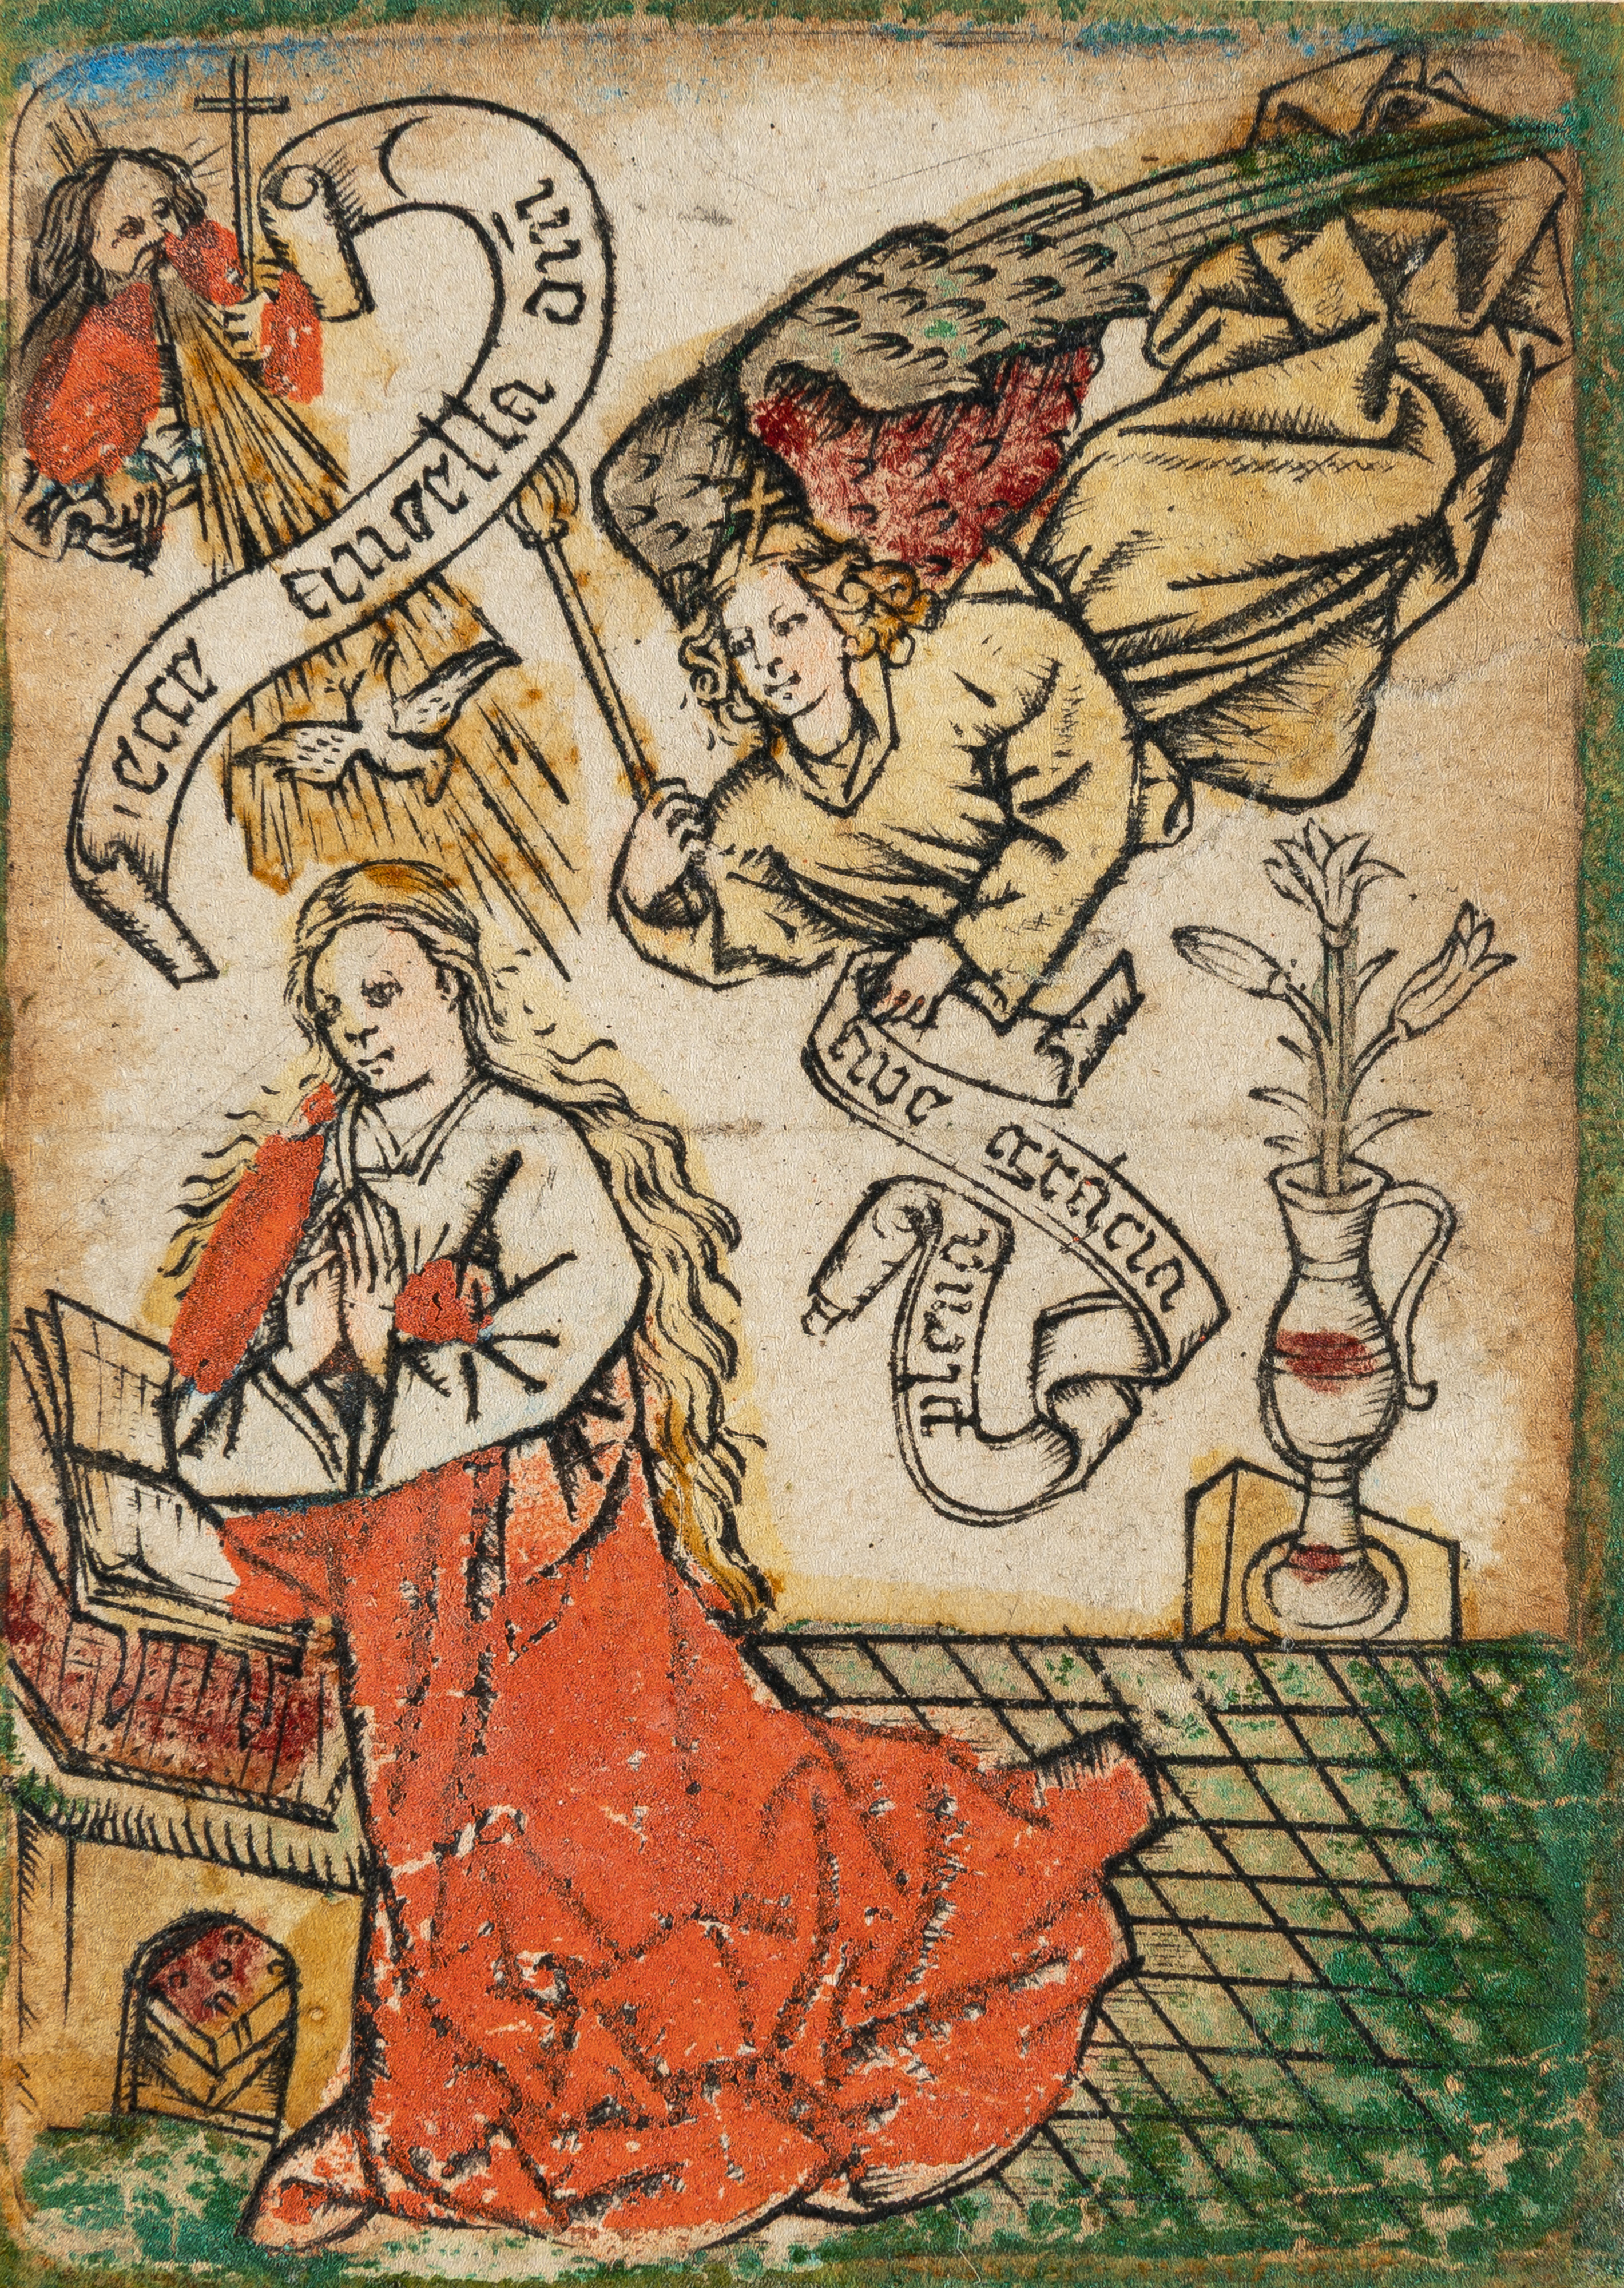 ecce ancella dn̄i
ave gracia
plena